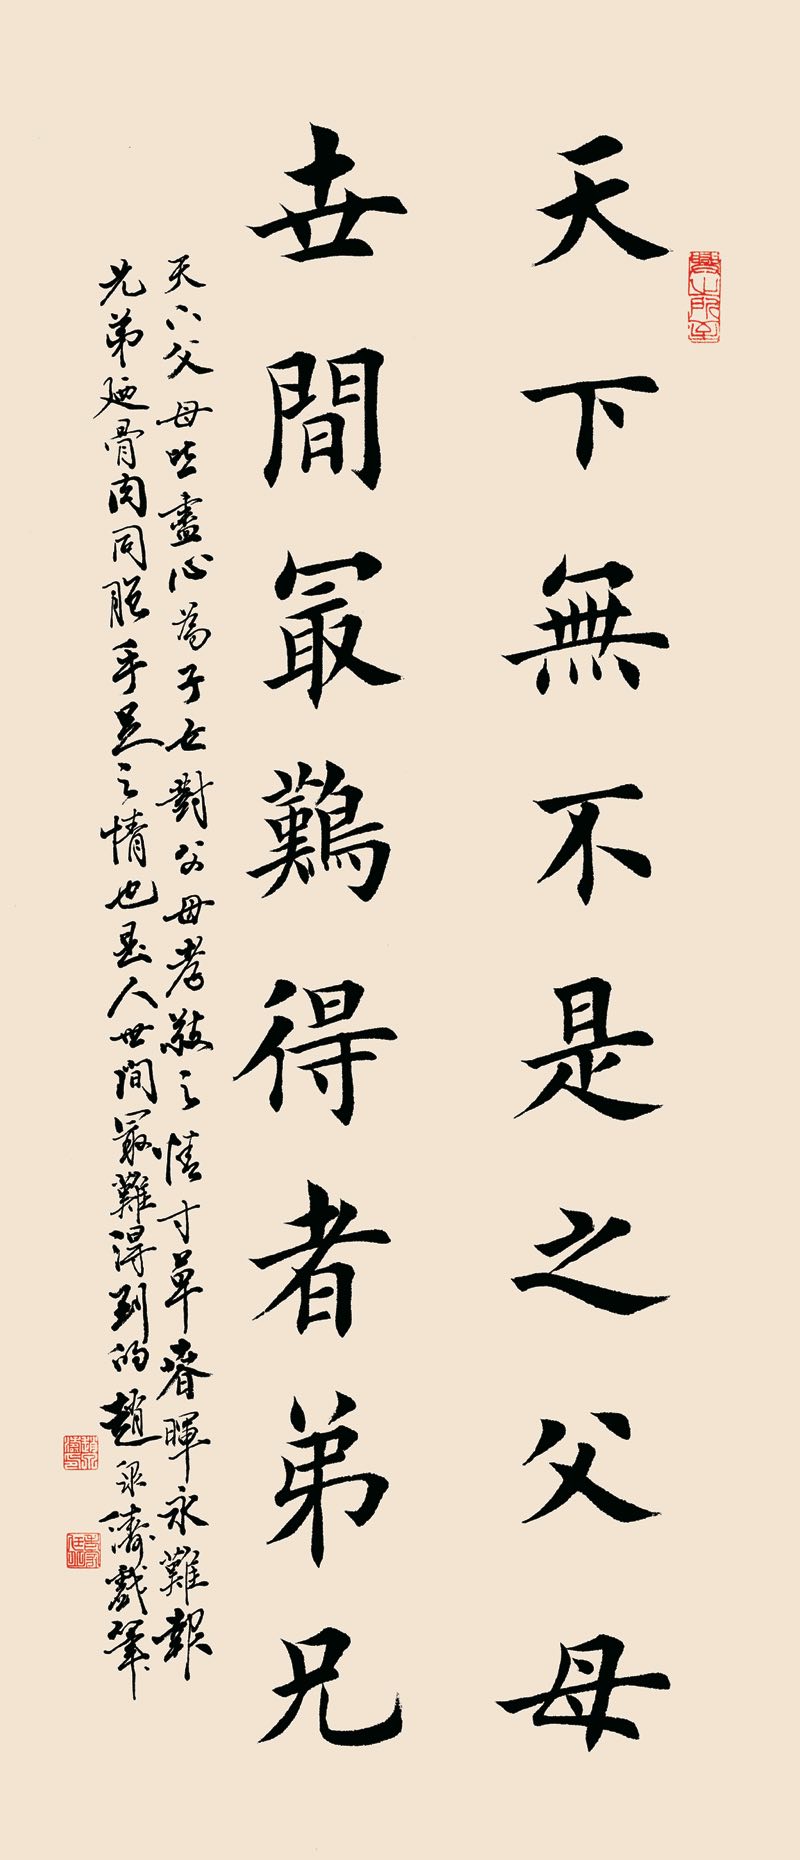 天下無不是之父母
世間最難得者弟兄
天下父母皆盡心為子女對父母孝敬之情寸草春暉永難報
兄弟乃骨肉同胞手足之情也是人世間最難得到的趙泉濤戲筆